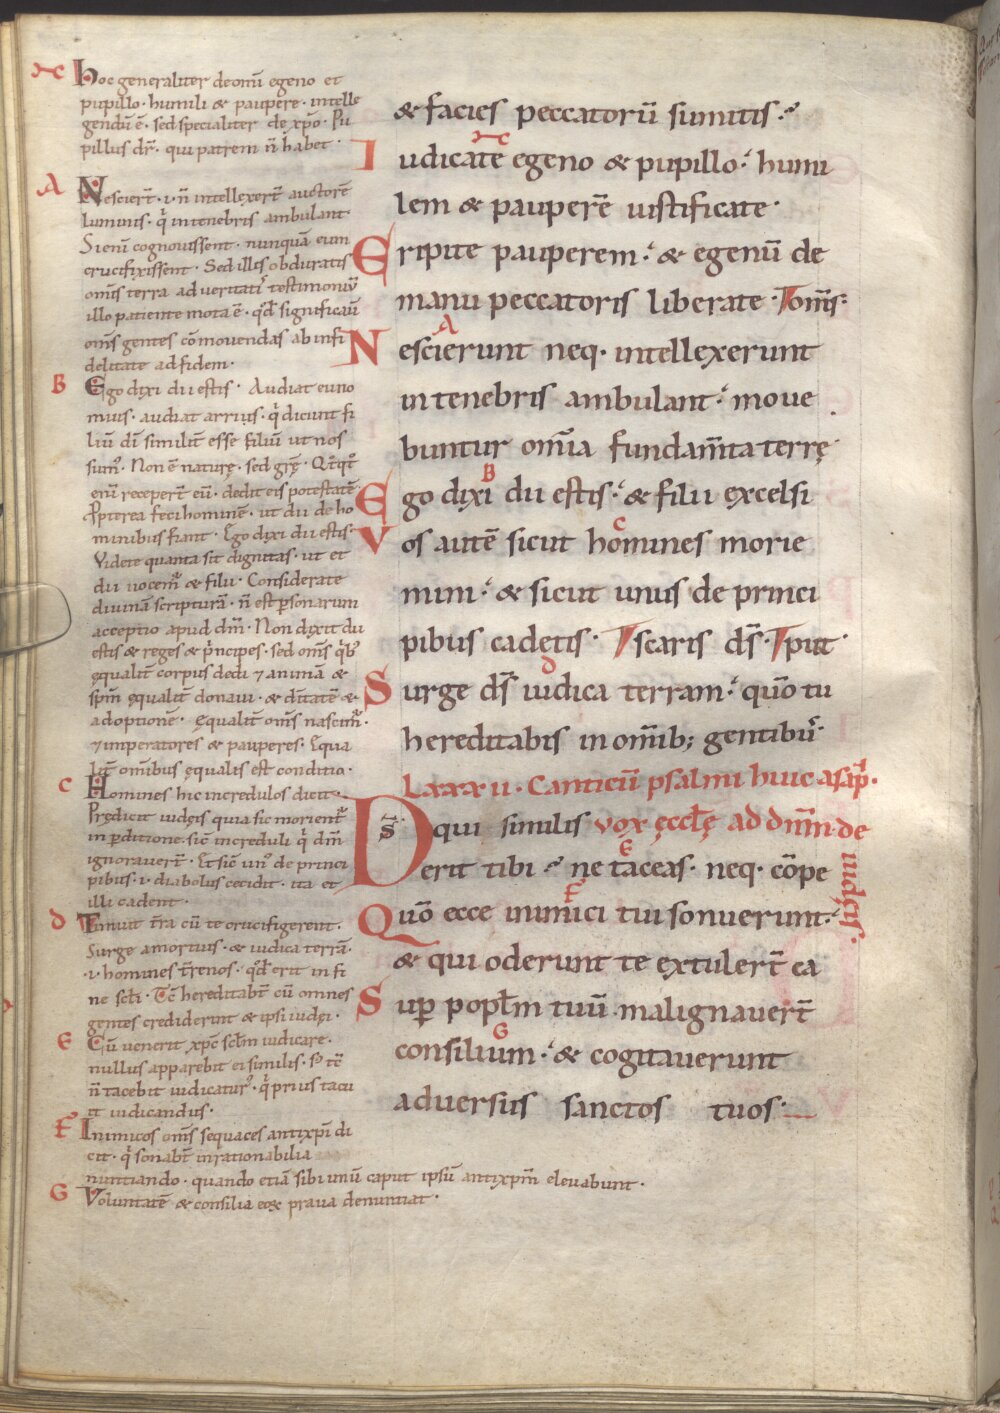 Hoc generaliter de om̄i egeno et
pupillo · humili & paupere · intelle
gendū ē · sed specialiter de xp̄o · Pu
pillus dr̄ · qui patrem n̄ habet ·
A Nescier̄t · i · n̄ intellexer̄t auctorē
luminis · q̇ in tenebris ambulant ·
Si enī cognovissent · nunquā eum
crucifixissent · Sed illis obduratis
om̄is terra ad veritatis testimoniū
illo patiente mota ē · qd̄ significavit
om̄s gentes cōmovendas ab infi
delitate ad fidem ·
B Ego dixi dii estis · Audiat euno
mius · audiat arrius · q̇ dicunt fi
liū dī similit̄ esse filiū ut nos
sum᷒ · Non ē naturę · sed grę̄ · Qt̄qt̄
enī receper̄t eū · dedit eis potestatē
Ꝓpterea feci hominē · ut dii de ho
minibus fiant · Ego dixi dii estis ·
Videte quanta sit dignitas · ut et
dii vocem̄ & filii · Considerate
divinā scripturā · n̄ est ꝑsonarum
acceptio apud dm̄ · Non dixit dii
estis & reges & p̄ncipes · sed om̄s qb᷒
ęqualit̄ corpus dedi ⁊ animā &
sp̄m ęqualit̄ donavi · & dīitatē &
adoptionē · Ęqualit̄ om̄s nascim̄ ·
⁊ imperatores & pauperes · Equa
lit̄ om̄ibus ęqualis est conditio ·
C Homines hic incredulos dicit ·
Prędicit iudęis quia sic morient̄
in ꝑditione · sic̄ increduli q̇ dm̄
ignoraver̄t · Et sic̄ un᷒ de princi
pibus · i · diabolus cecidit · ita et
illi cadent ·
D Timuit t̄ra cū te crucifigerent ·
Surge a mortuis · & iudica terrā ·
i · homines t̄renos · qd̄ erit in fi
ne scl̄i · Tc̄ hereditabit̄ cū omnes
gentes crediderint & ipsi iudęi ·
E Cū venerit xp̄c sclm̄ iudicare ·
nullus apparebit ei similis · S; tc̄
n̄ tacebit iudicatur᷒ · q̇ prius tacu
it iudicandus ·
F Inimicos om̄s sequaces antixp̄i di
cit · q̇ sonabt̄ inrationabilia
nuntiando · quando etiā sibi unū caput ipsū antixpm̄ elevabunt ·
G Voluntatē & consilia eoꝝ prava denuntiat ·
& facies peccatorū sumitis ·
Iudicate egeno & pupillo · humi
lem & pauperē iustificate ·
Eripite pauperem · & egenū de
manu peccatoris liberate · Tom̄s:
A
Nescierunt neq · intellexerunt
in tenebris ambulant · move
buntur om̄ia fundam̄ta terrę ·
B
Ego dixi dii estis · & filii excelsi
C
Vos autē sicut homines morie
mini · & sicut unus de princi
pibus cadetis · Tscaris ds̄ · Tput ·
D
Surge ds̄ iudica terram · quō tu
hereditabis in om̄ib; gentibus ·
Lxxxii · Canticū psalmi huic asaph ·
Ds̄ qui similis vox ęccl̄ę ad dn̄m · de
iudęis ·
E
erit tibi · ne taceas · neq · cōpe
F
Quō ecce inimici tui sonuerunt ·
& qui oderunt te extuler̄t ca
Suꝑ popl̄m tuū malignaver̄t
G
consilium · & cogitaverunt
adversus sanctos tuos ·